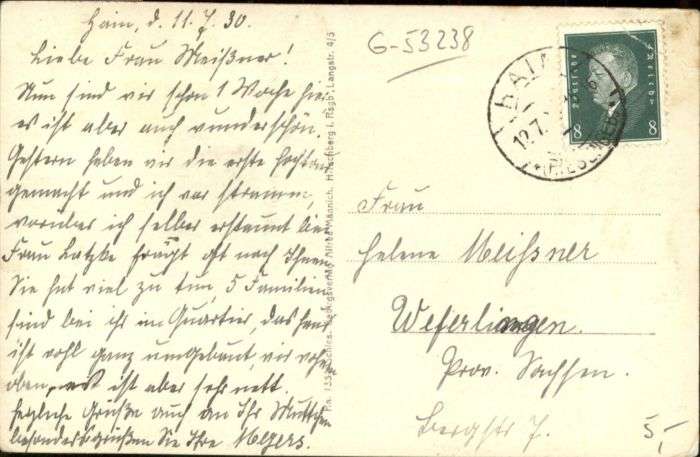 Hain, d. 11.7.30.
Liebe Frau Meißner!
Nun sind wir schon 1 Woche hier
es ist aber auch wunderschön,
Gestern haben wir die erste
gemacht und ich war stramm,
worüber ich selber erstaunt bin
Frau Latzke frägt oft nach Ihnen
Sie hat viel zu tun, 5 Familien
sind bei ihr im Quartier, das Haus
ist wohl ganz umgebaut, wir wohnen
oben, es ist aber sehr nett.
Herzliche Grüße auch an Ihr Muttchen
besonders grüßen Sie Ihre Meyers.
Schles. Gebirgsverlag Alfred Mannich, Hirschberg i. Rsgb., Langstr. 4/5
G-53238
HAIN
12.7.
Deutsches Reich
8 8
Frau
Helene Meißner
Weferlingen.
Prov. Sachsen.
Bergstr 7.
5,-